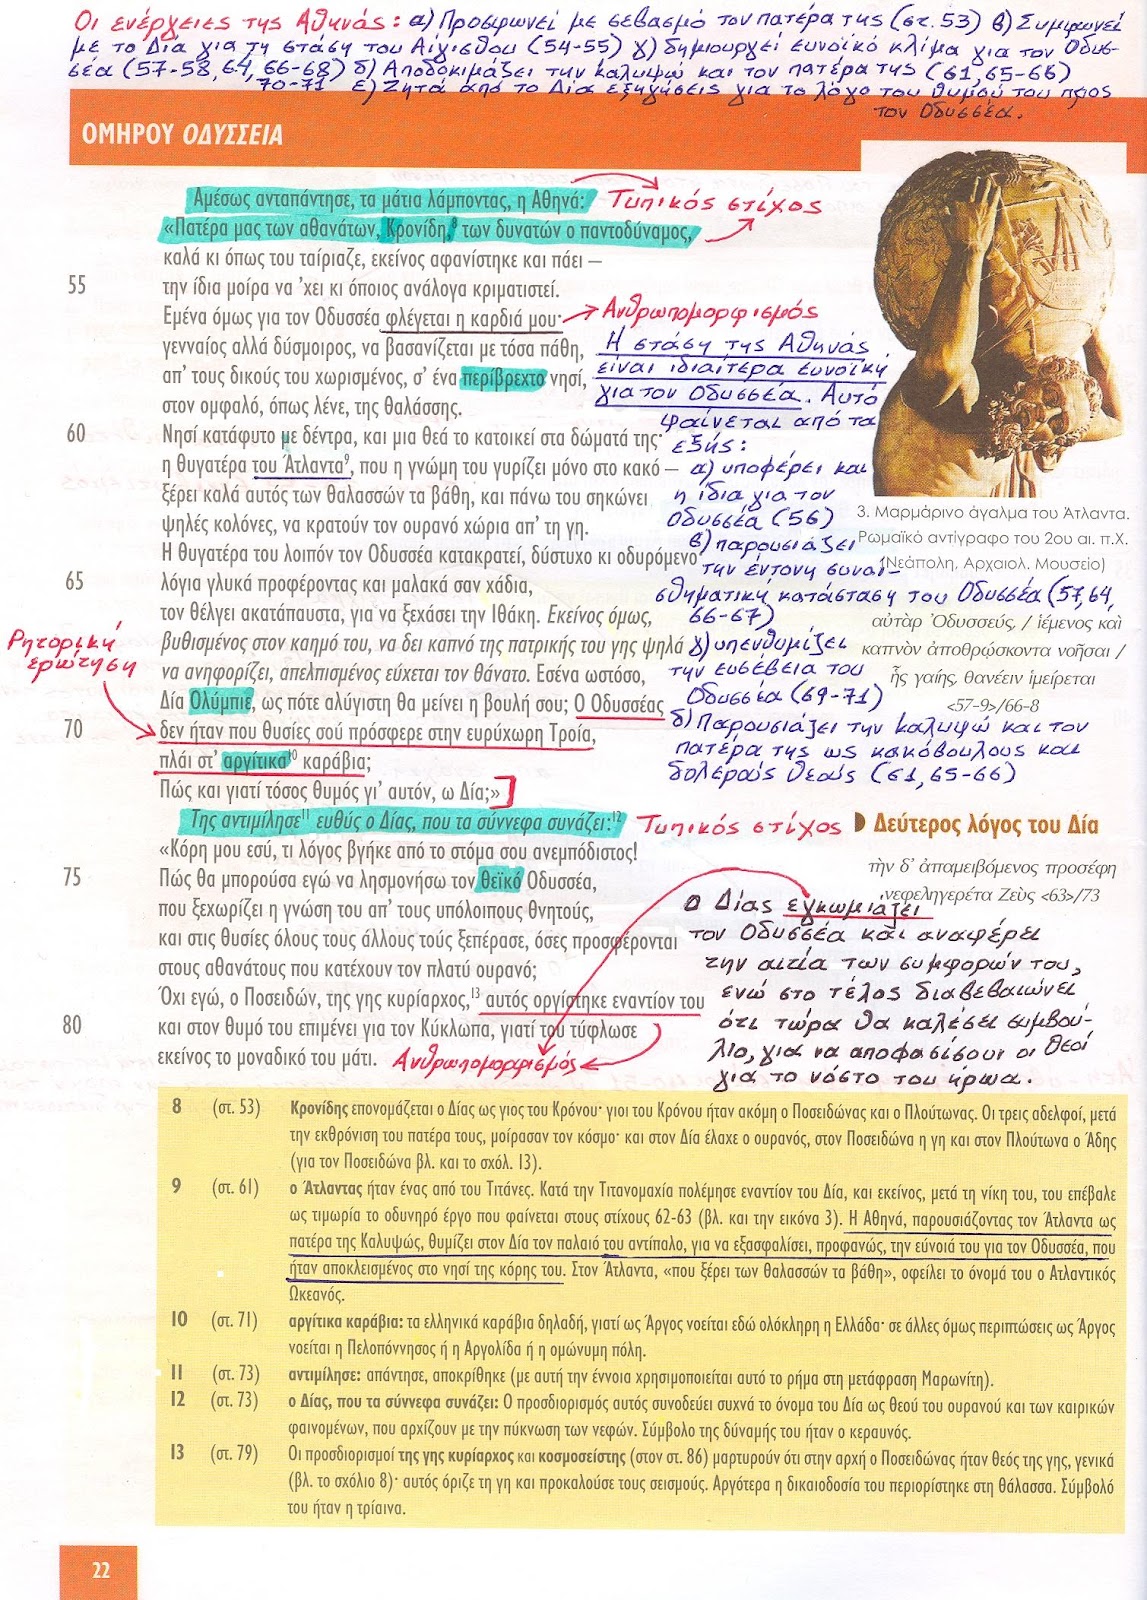 Οι ενέργειες της Αθηνάς: α) Προσφωνεί με σεβασμό τον πατέρα της (στ. 53) β) Συμφωνεί
με το Δία για τη στάση του Αίγισθου (54-55) γ) δημιουργεί ευνοϊκό κλίμα για τον Οδυσ-
σέα (57-58, 64, 66-68) δ) Αποδοκιμάζει την Καλυψώ και τον πατέρα της (61, 65-66)
70-71 ε) Ζητά από το Δία εξηγήσεις για το λόγο του θυμού του προς
τον Οδυσσέα.
ΟΜΗΡΟΥ ΟΔΥΣΣΕΙΑ
Αμέσως ανταπάντησε, τα μάτια λάμποντας, η Αθηνά:
Τυπικός στίχος
«Πατέρα μας των αθανάτων, Κρονίδη,8 των δυνατών ο παντοδύναμος,
καλά κι όπως του ταίριαζε, εκείνος αφανίστηκε και πάει –
55 την ίδια μοίρα να 'χει κι όποιος ανάλογα κριματιστεί.
Εμένα όμως για τον Οδυσσέα φλέγεται η καρδιά μου·
Ανθρωπομορφισμός
γενναίος αλλά δύσμοιρος, να βασανίζεται με τόσα πάθη,
απ' τους δικούς του χωρισμένος, σ' ένα περίβρεχτο νησί,
στον ομφαλό, όπως λένε, της θαλάσσης.
60 Νησί κατάφυτο με δέντρα, και μια θεά το κατοικεί στα δώματά της·
η θυγατέρα του Άτλαντα9, που η γνώμη του γυρίζει μόνο στο κακό –
ξέρει καλά αυτός των θαλασσών τα βάθη, και πάνω του σηκώνει
ψηλές κολόνες, να κρατούν τον ουρανό χώρια απ' τη γη.
Η θυγατέρα του λοιπόν τον Οδυσσέα κατακρατεί, δύστυχο κι οδυρόμενο·
65 λόγια γλυκά προφέροντας και μαλακά σαν χάδια,
τον θέλγει ακατάπαυστα, για να ξεχάσει την Ιθάκη. Εκείνος όμως,
βυθισμένος στον καημό του, να δει καπνό της πατρικής του γης ψηλά
να ανηφορίζει, απελπισμένος εύχεται τον θάνατο. Εσένα ωστόσο,
Δία Ολύμπιε, ως πότε αλύγιστη θα μείνει η βουλή σου; Ο Οδυσσέας
70 δεν ήταν που θυσίες σού πρόσφερε στην ευρύχωρη Τροία,
πλάι στ' αργίτικα10 καράβια;
Πώς και γιατί τόσος θυμός γι' αυτόν, ω Δία;»
Ρητορική
ερώτηση
Η στάση της Αθηνάς
είναι ιδιαίτερα ευνοϊκή
για τον Οδυσσέα. Αυτό
φαίνεται από τα
εξής:
α) υποφέρει και
η ίδια για τον
Οδυσσέα (56)
β) παρουσιάζει
την έντονη συναι-
σθηματική κατάσταση του Οδυσσέα (57, 64,
66-67)
γ) υπενθυμίζει
την ευσέβεια του
Οδυσσέα (69-71)
δ) Παρουσιάζει την Καλυψώ και τον
πατέρα της ως κακόβουλους και
δολερούς θεούς (61, 65-66)
3. Μαρμάρινο άγαλμα του Άτλαντα.
Ρωμαϊκό αντίγραφο του 2ου αι. π.Χ.
(Νεάπολη, Αρχαιολ. Μουσείο)
αὐτὰρ Ὀδυσσεύς, / ἱέμενος καὶ
καπνὸν ἀποθρῴσκοντα νοῆσαι /
ἧς γαίης, θανέειν ἱμείρεται
<57-9>/66-8
Της αντιμίλησε11 ευθύς ο Δίας, που τα σύννεφα συνάζει:12
Τυπικός στίχος
Δεύτερος λόγος του Δία
«Κόρη μου εσύ, τι λόγος βγήκε από το στόμα σου ανεμπόδιστος!
75 Πώς θα μπορούσα εγώ να λησμονήσω τον θεϊκό Οδυσσέα,
που ξεχωρίζει η γνώση του απ' τους υπόλοιπους θνητούς,
και στις θυσίες όλους τους άλλους τούς ξεπέρασε, όσες προσφέρονται
στους αθανάτους που κατέχουν τον πλατύ ουρανό;
Όχι εγώ, ο Ποσειδών, της γης κυρίαρχος,13 αυτός οργίστηκε εναντίον του
80 και στον θυμό του επιμένει για τον Κύκλωπα, γιατί του τύφλωσε
εκείνος το μοναδικό του μάτι.
Ανθρωπομορφισμός
τὴν δ' ἀπαμειβόμενος προσέφη
νεφεληγερέτα Ζεὺς <63>/73
Ο Δίας εγκωμιάζει
τον Οδυσσέα και αναφέρει
την αιτία των συμφορών του,
ενώ στο τέλος διαβεβαιώνει
ότι τώρα θα καλέσει συμβού-
λιο, για να αποφασίσουν οι θεοί
για το νόστο του ήρωα.
8 (στ. 53) Κρονίδης επονομάζεται ο Δίας ως γιος του Κρόνου· γιοι του Κρόνου ήταν ακόμη ο Ποσειδώνας και ο Πλούτωνας. Οι τρεις αδελφοί, μετά
την εκθρόνιση του πατέρα τους, μοίρασαν τον κόσμο· και στον Δία έλαχε ο ουρανός, στον Ποσειδώνα η γη και στον Πλούτωνα ο Άδης
(για τον Ποσειδώνα βλ. και το σχόλ. 13).
9 (στ. 61) ο Άτλαντας ήταν ένας από του Τιτάνες. Κατά την Τιτανομαχία πολέμησε εναντίον του Δία, και εκείνος, μετά τη νίκη του, του επέβαλε
ως τιμωρία το οδυνηρό έργο που φαίνεται στους στίχους 62-63 (βλ. και την εικόνα 3). Η Αθηνά, παρουσιάζοντας τον Άτλαντα ως
πατέρα της Καλυψώς, θυμίζει στον Δία τον παλαιό του αντίπαλο, για να εξασφαλίσει, προφανώς, την εύνοιά του για τον Οδυσσέα, που
ήταν αποκλεισμένος στο νησί της κόρης του. Στον Άτλαντα, «που ξέρει των θαλασσών τα βάθη», οφείλει το όνομά του ο Ατλαντικός
Ωκεανός.
10 (στ. 71) αργίτικα καράβια: τα ελληνικά καράβια δηλαδή, γιατί ως Άργος νοείται εδώ ολόκληρη η Ελλάδα· σε άλλες όμως περιπτώσεις ως Άργος
νοείται η Πελοπόννησος ή η Αργολίδα ή η ομώνυμη πόλη.
11 (στ. 73) αντιμίλησε: απάντησε, αποκρίθηκε (με αυτή την έννοια χρησιμοποιείται αυτό το ρήμα στη μετάφραση Μαρωνίτη).
12 (στ. 73) ο Δίας, που τα σύννεφα συνάζει: Ο προσδιορισμός αυτός συνοδεύει συχνά το όνομα του Δία ως θεού του ουρανού και των καιρικών
φαινομένων, που αρχίζουν με την πύκνωση των νεφών. Σύμβολο της δύναμής του ήταν ο κεραυνός.
13 (στ. 79) Οι προσδιορισμοί της γης κυρίαρχος και κοσμοσείστης (στον στ. 86) μαρτυρούν ότι στην αρχή ο Ποσειδώνας ήταν θεός της γης, γενικά
(βλ. το σχόλιο 8)· αυτός όριζε τη γη και προκαλούσε τους σεισμούς. Αργότερα η δικαιοδοσία του περιορίστηκε στη θάλασσα. Σύμβολό
του ήταν η τρίαινα.
22